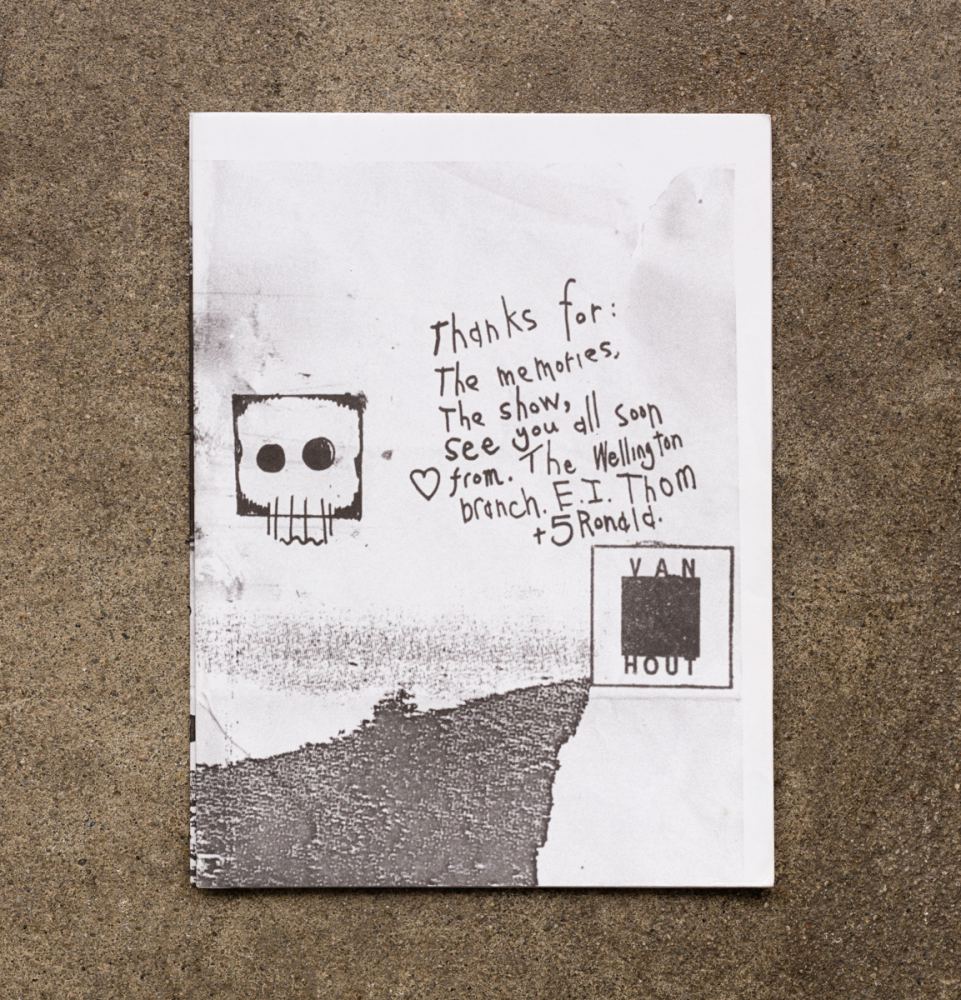 Thanks for:
The memories,
The show,
see you all soon
♡ from. The Wellington
branch. E.I. Thom
+5 Ronald.
VAN
HOUT